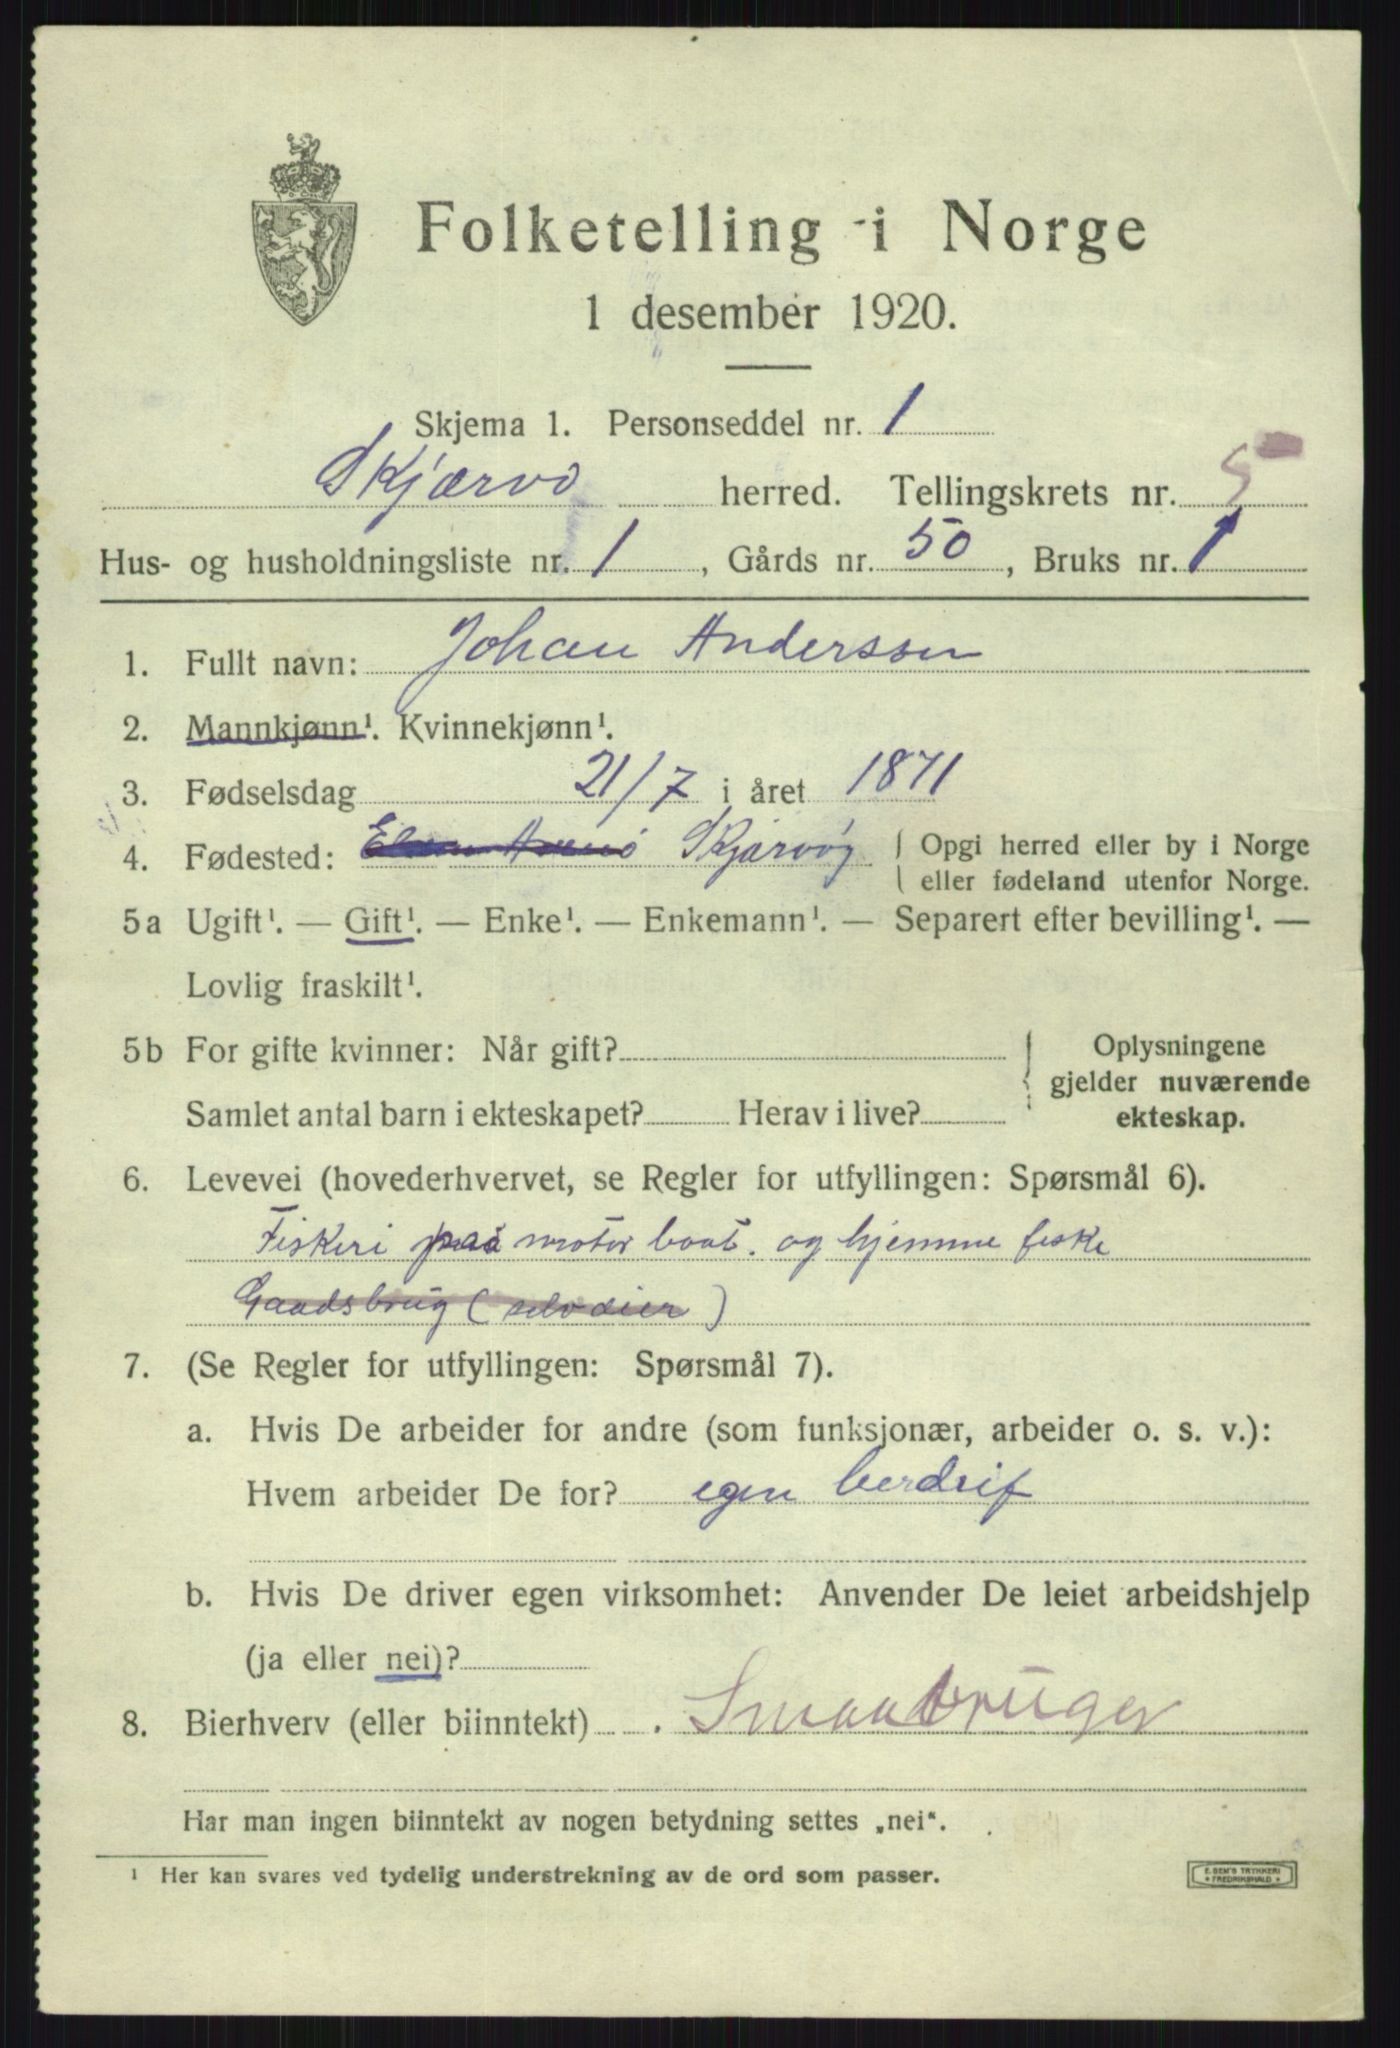 Folketelling i Norge
1 desember 1920.
Skjema 1. Personseddel nr. 1
Skjærvø herred. Tellingskrets nr. 5
Hus- og husholdningsliste nr. 1, Gårds nr. 50, Bruks nr. 1
1. Fullt navn: Johan Anderssen
2. Mannkjønn¹. Kvinnekjønn¹.
3. Fødselsdag 21/7 i året 1871
4. Fødested: Skjærvøy { Opgi herred eller by i Norge
eller fødeland utenfor Norge.
5a Ugift¹. — Gift¹. — Enke¹. — Enkemann¹. — Separert efter bevilling¹. —
Lovlig fraskilt¹.
5b For gifte kvinner: Når gift? { Oplysningene
gjelder nuværende
Samlet antal barn i ekteskapet? Herav i live? ekteskap.
6. Levevei (hovederhvervet, se Regler for utfyllingen: Spørsmål 6).
Fiskeri paa motor baat. og hjemme feske
Gaardsbrug (selveier)
7. (Se Regler for utfyllingen: Spørsmål 7).
a. Hvis De arbeider for andre (som funksjonær, arbeider o. s. v.):
Hvem arbeider De for? egen berdrif
b. Hvis De driver egen virksomhet: Anvender De leiet arbeidshjelp
(ja eller nei)?
8. Bierhverv (eller biinntekt) Smaabruger
Har man ingen biinntekt av nogen betydning settes „nei“.
¹ Her kan svares ved tydelig understrekning av de ord som passer.
E. SEM'S TRYKKERI
* FREDRIKSHALD *